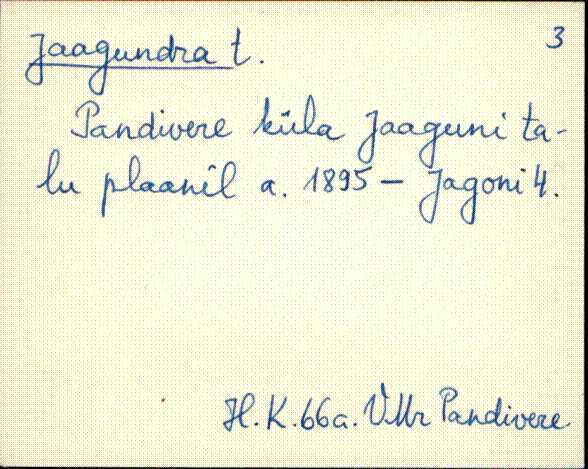 Jaagundra t. 3
Pandivere küla Jaaguni ta-
lu plaanil a. 1895 – Jagoni 4.
H.K. 66a. VMr Pandivere